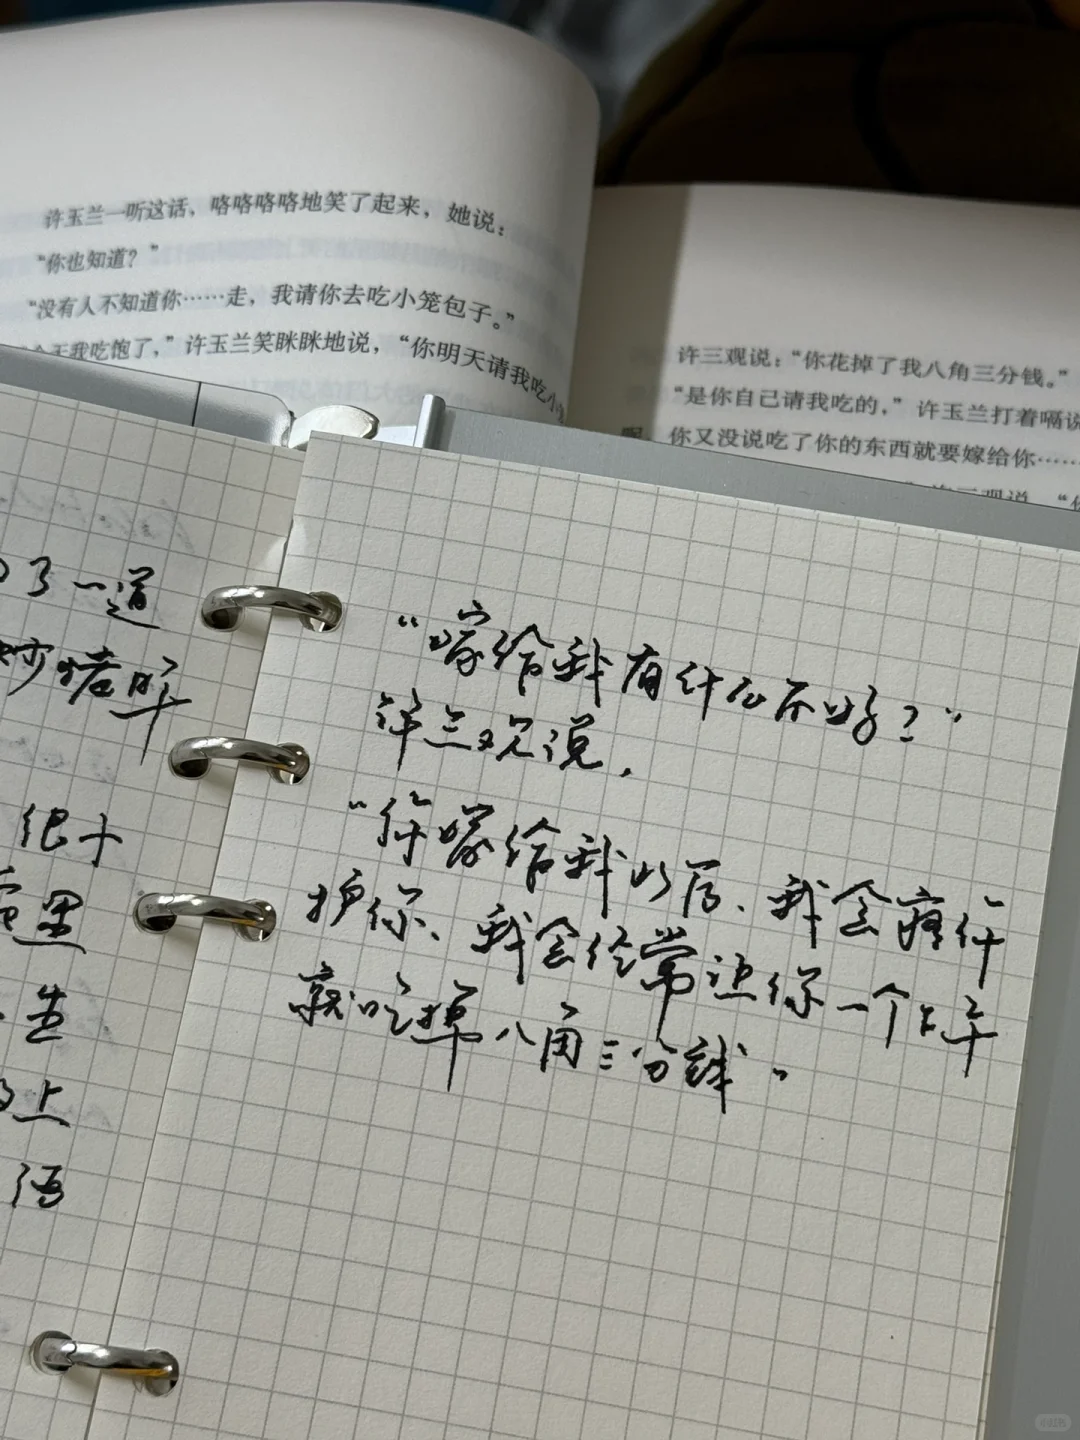 许玉兰一听这话，咯咯咯咯地笑了起来，她说：
“你也知道？”
“没有人不知道你……走，我请你去吃小笼包子。”
天我吃饱了，”许玉兰笑眯眯地说，“你明天请我吃小
许三观说：“你花掉了我八角三分钱。”
“是你自己请我吃的，”许玉兰打着嗝说
你又没说吃了你的东西就要嫁给你……
了一道
炒
很
里
生
上
语
“嫁给我有什么不好？”
许三观说，
“你嫁给我以后、我会疼你
护你、我会经常让你一个上午
就吃掉八角三分钱。
小红书